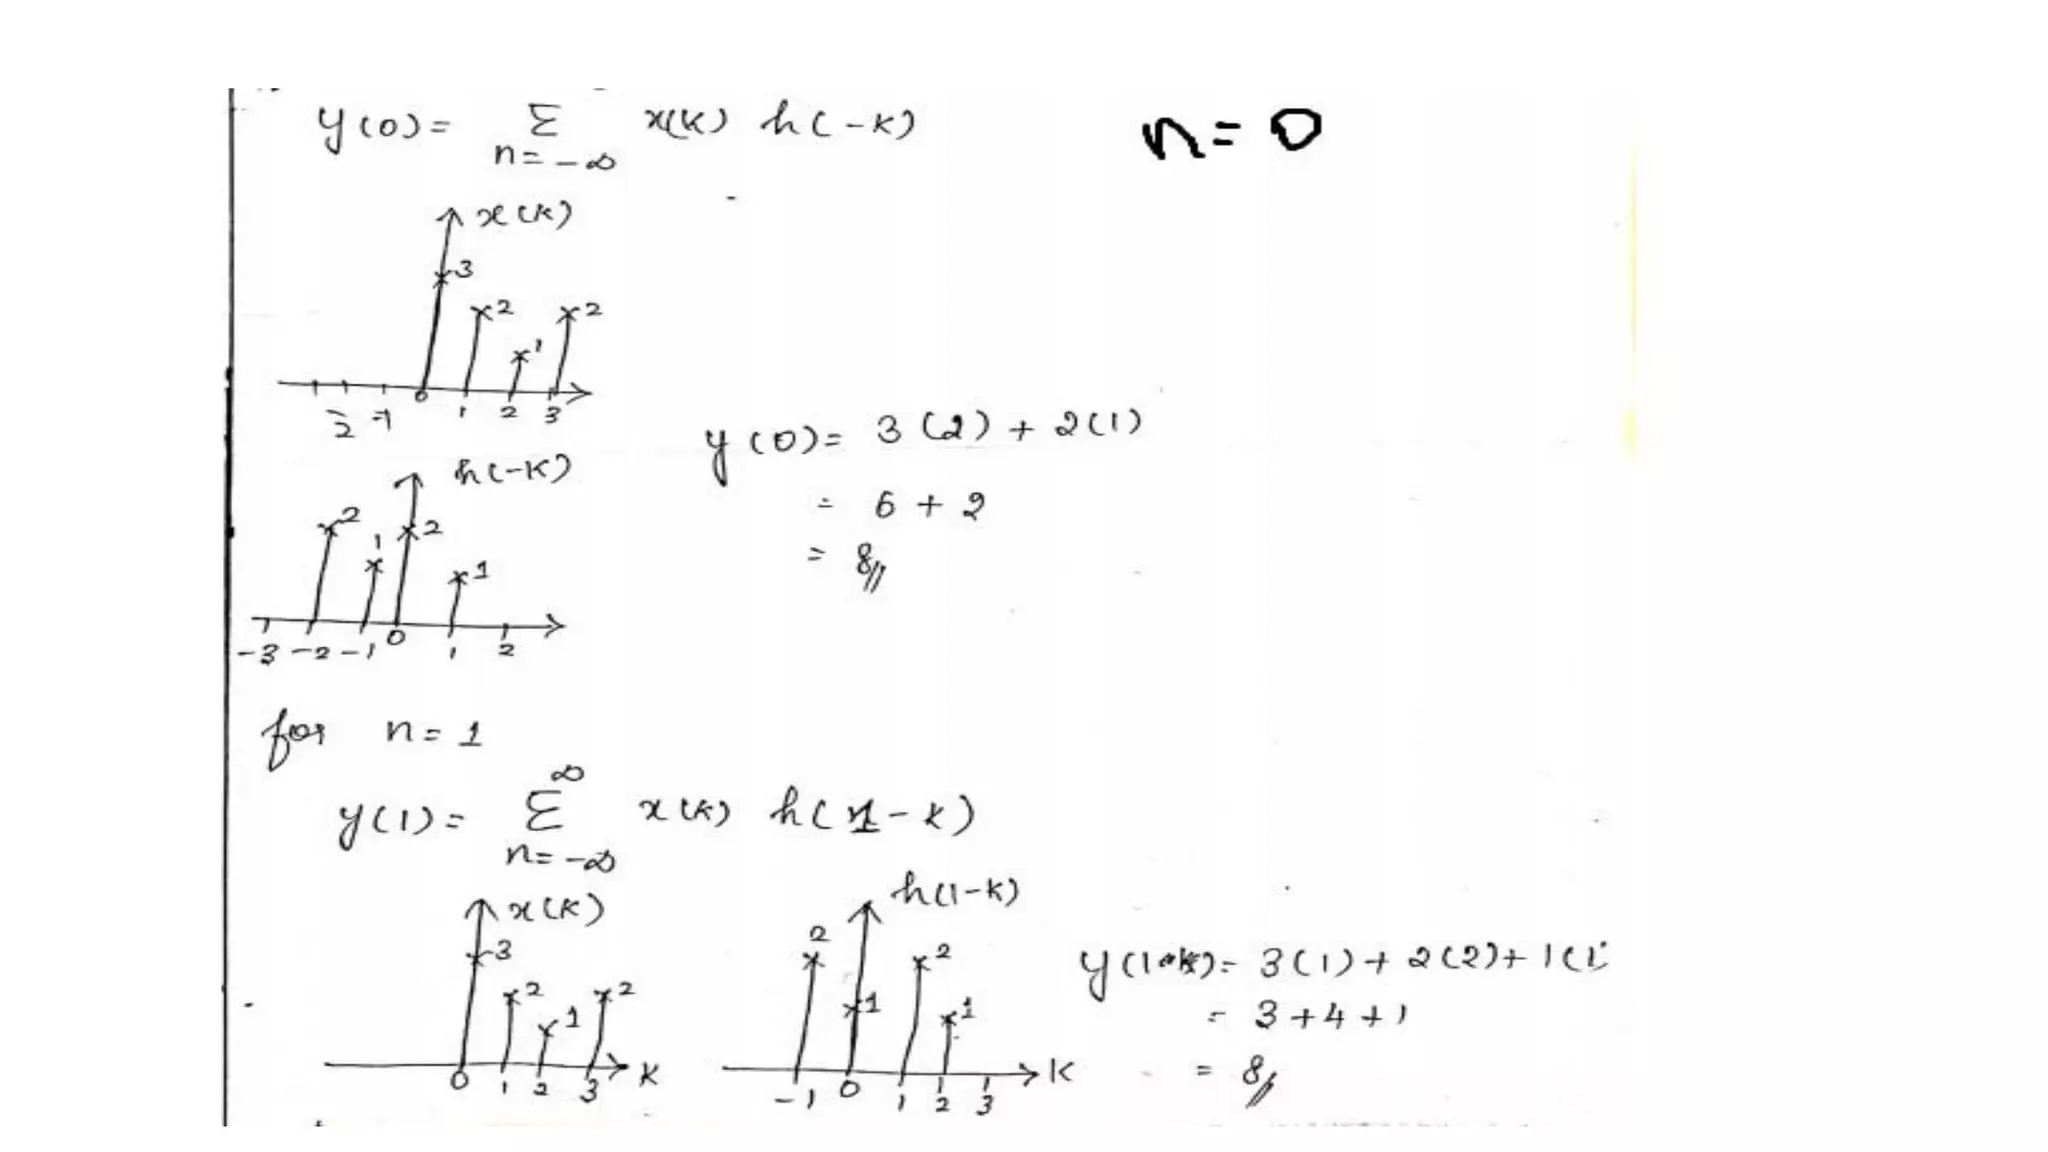 y(0)= Σ x(k) h(-k)
n=-∞
n=0
x(k)
3
2 2
1
-2 -1 0 1 2 3
y(0)= 3(2)+2(1)
= 6+2
= 8//
h(-k)
2 1 2 1
-3 -2 -1 0 1 2
for n=1
∞
y(1)= Σ x(k) h(1-k)
n=-∞
x(k)
3 2 1 2
0 1 2 3 k
h(1-k)
2 1 2 1
-1 0 1 2 3 k
= 3(1)+2(2)+1(1)
= 3+4+1
= 8//